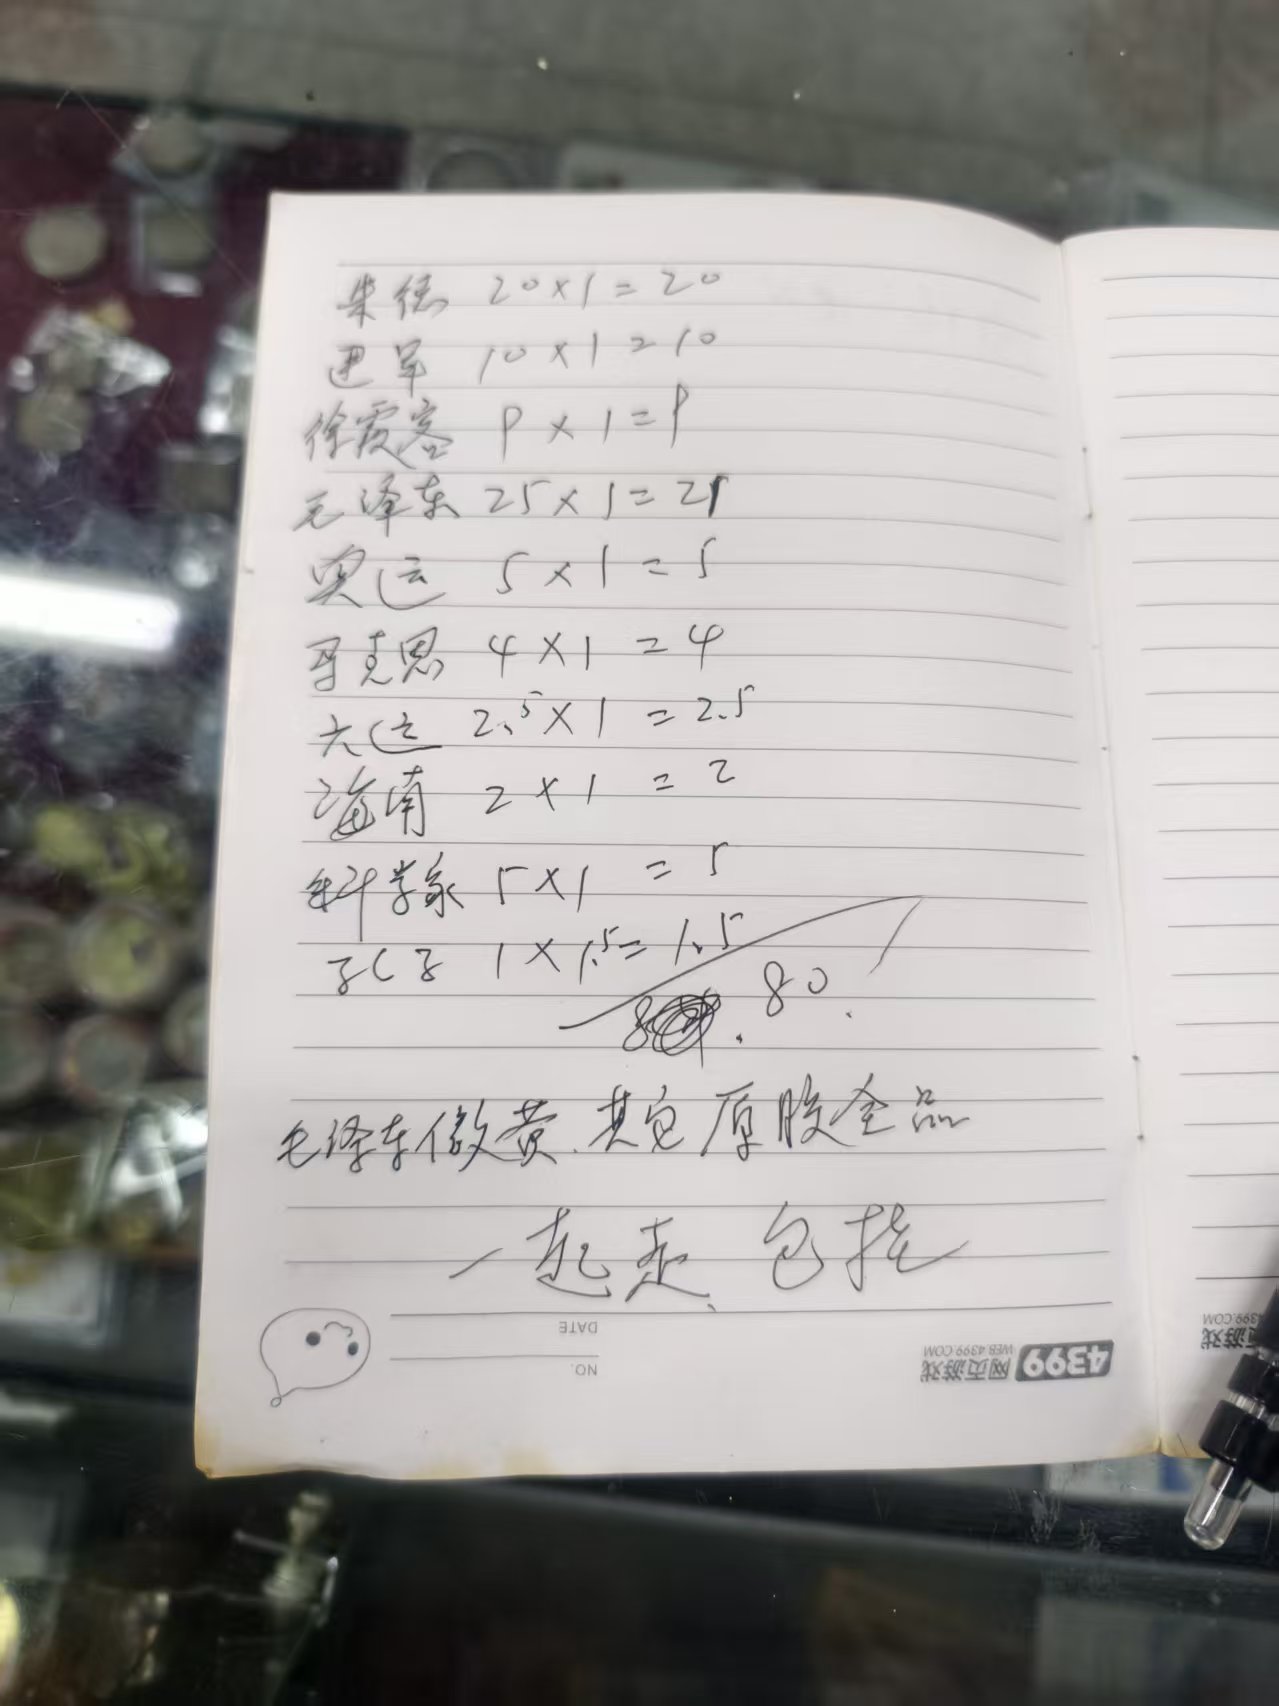 朱德 20×1=20
迅军 10×1=10
徐霞客 9×1=9
毛泽东 25×1=25
奥运 5×1=5
马克思 4×1=4
大运 2.5×1=2.5
海南 2×1=2
科学家 5×1=5
孔子 1×1.5=1.5
80.
毛泽东微黄.其它原胶全品
一起走、包挖
DATE
NO.
4399 网页游戏
WEB.4399.COM
页游戏
4399.COM